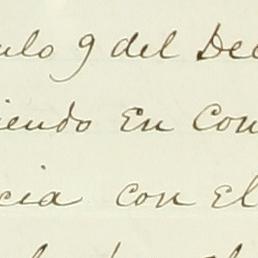 ulo 9 del Dec
iendo En Con
cia con El